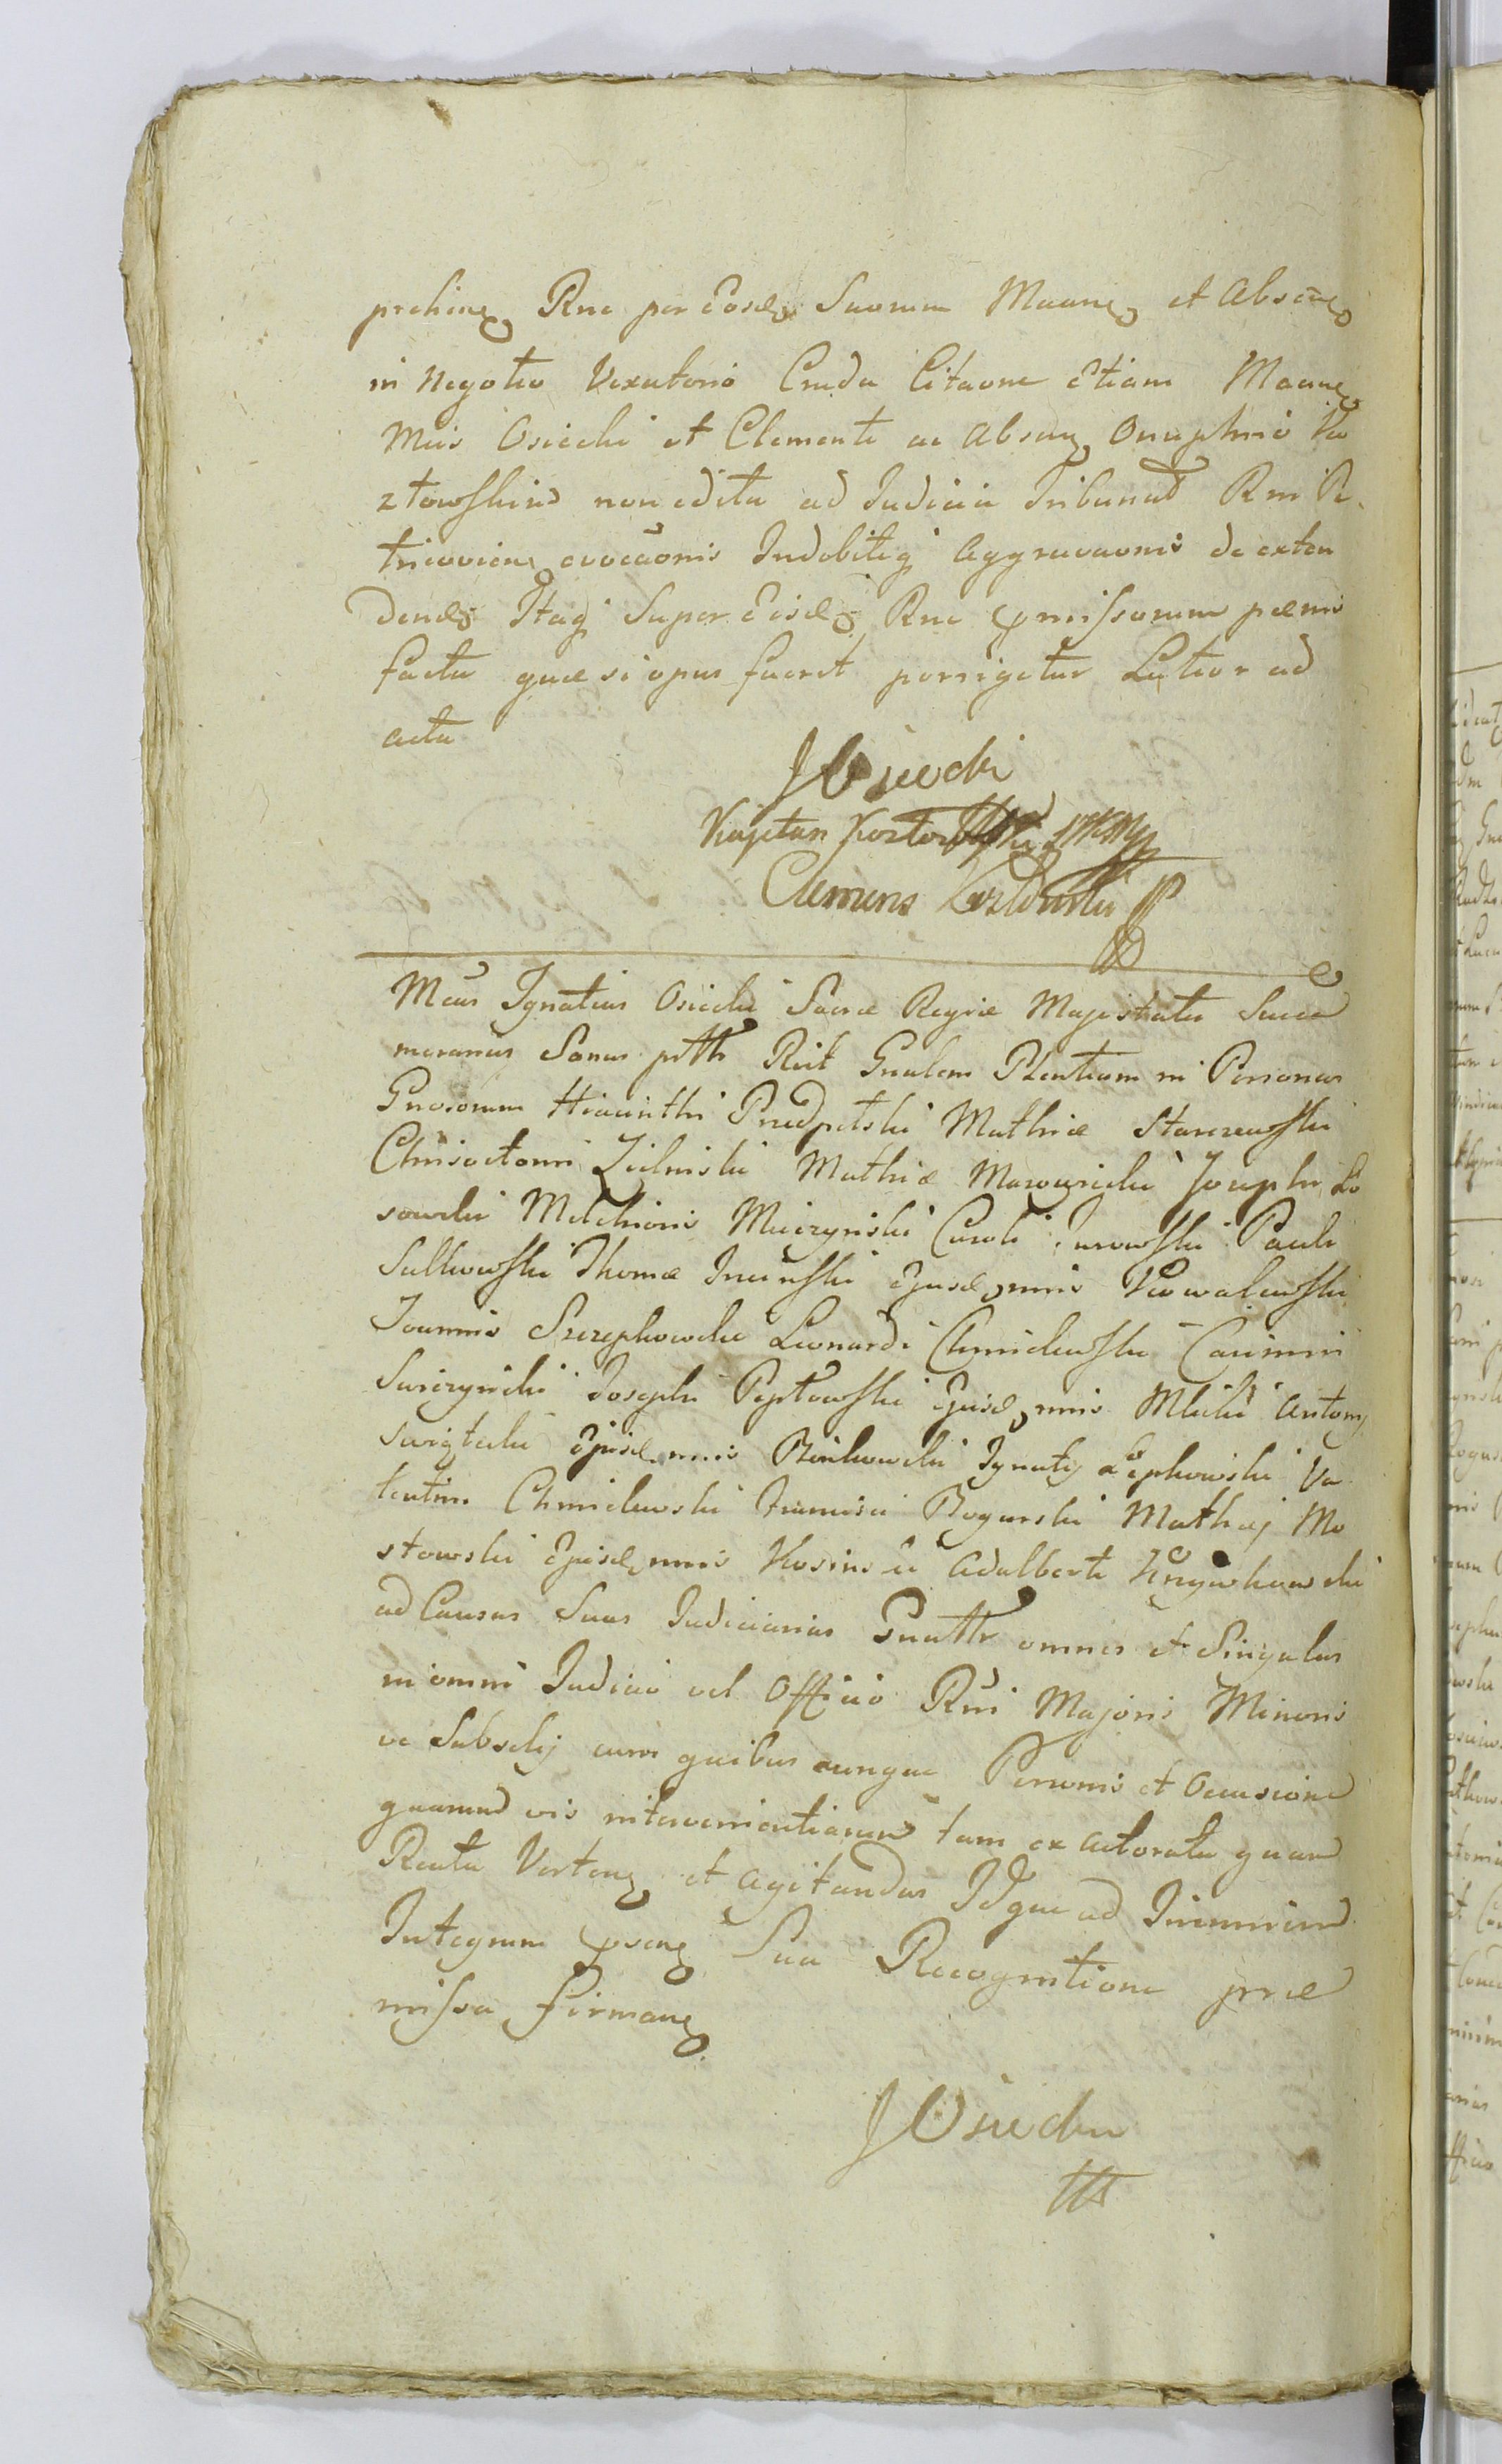 prehens Rne per Eosd Suorum Maane et Absene
in Negotio Vexatorio Cruda Citaone Etiam Maane
Mcis Osiecki et Clementi ac Absen Onuphrio Ko
ztowskim non edita ad Judicia Tribunal Rni Pe
tricovien evocaonis Indebiteq Aggravaonis de exten
dend Itaq Super Eisd Rne pmissorum paenis
facta quae si opus fuerit porrigetur Latior ad
acta
J Osiecki
Kajetan Koztowski
Clemens Koztowski
Mcus Ignatius Osiecki Sacrae Regiae Majestatis Succa
meranus Sanus ptth Rit Gnalem Plentiam in Personas
Gnosorum Hiacinthi Przedpelski Mathiae Starczewski
Chrisostomi Zielinski Mathiae Mazowiecki Josephi Lo
sowski Melchioris Mieczynski Caroli urowski Pauli
Sulkowski Thomae ejusd nnis Kowalewski
Joannis Szczepkowski Leonardi Chmielewski Casimiri
Swiczynski Josephi Peptowski Ejusd nnis Mlicki Antony
Swigtecki Ejusd nnis Binkowski Ignaty Lepkowski Va
lentini Chmielewski Francisci Bogurski Mathaej Mo
stowski Ejusd nnis Kosinski Adalberti Krzywkowski
ad Causas Suas Judiciarias Gnatter omnes et Singulas
in omni Judicio vel Officio Rni Majoris Minoris
ve Subselij cum quibus cunque Personis et Occasione
quarum vis intervenientiarum tam ex actoratu quam
Reatu Verten et agitandas Idque ad Inramim
Integrum psens Sua Recognitione prae
missa firmans
J Osiecki